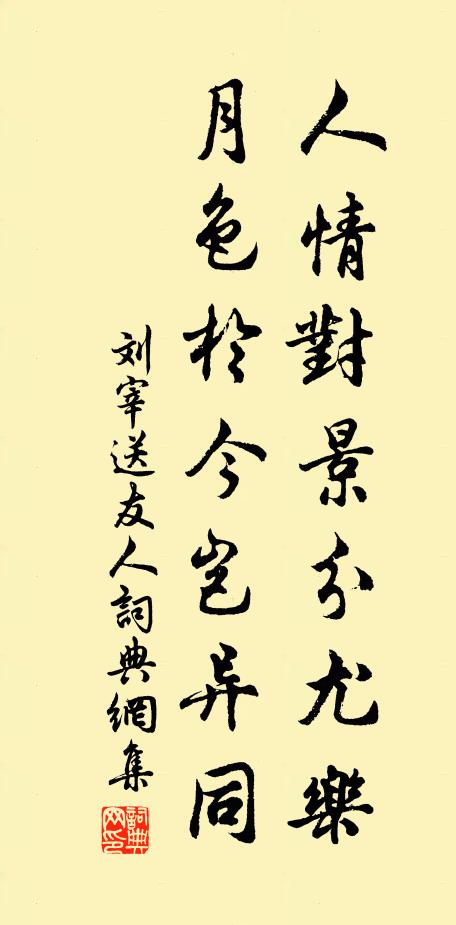 人情對景分尤樂
月色於今豈异同
刘宰送友人詞典網集
詞典网印